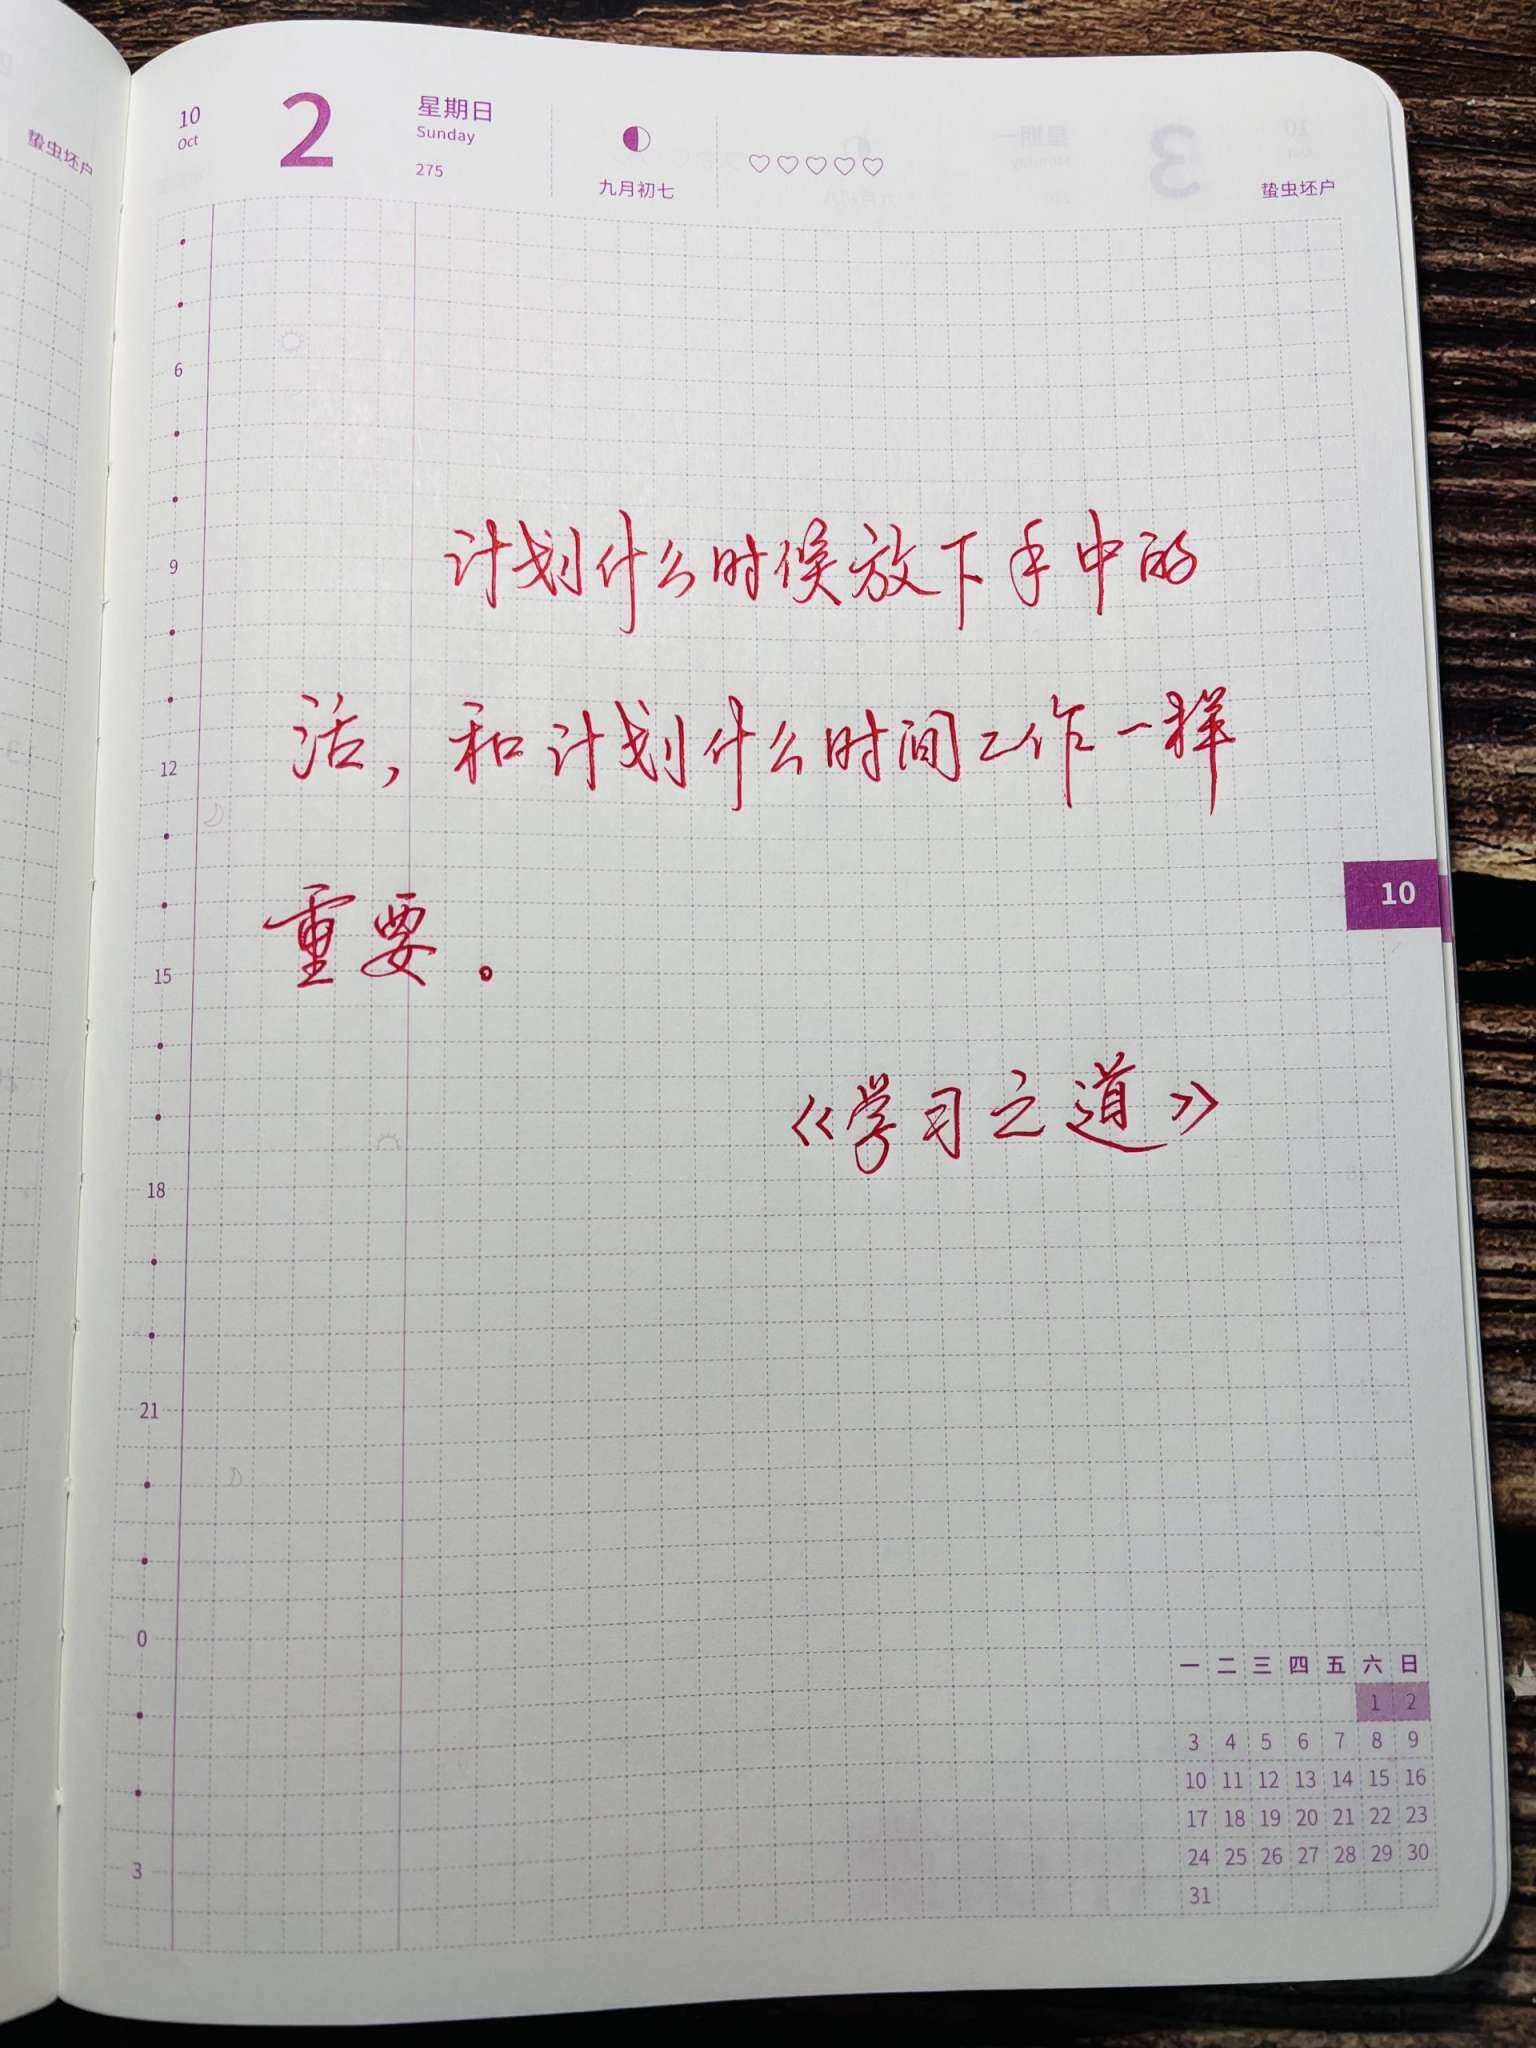 10
Oct
2
星期日
Sunday
275
九月初七
蛰虫坯户
蛰虫坯户
计划什么时候放下手中的
活，和计划什么时间工作一样
重要。
《学习之道》
6
9
12
15
18
21
0
3
10
一 二 三 四 五 六 日
1 2
3 4 5 6 7 8 9
10 11 12 13 14 15 16
17 18 19 20 21 22 23
24 25 26 27 28 29 30
31